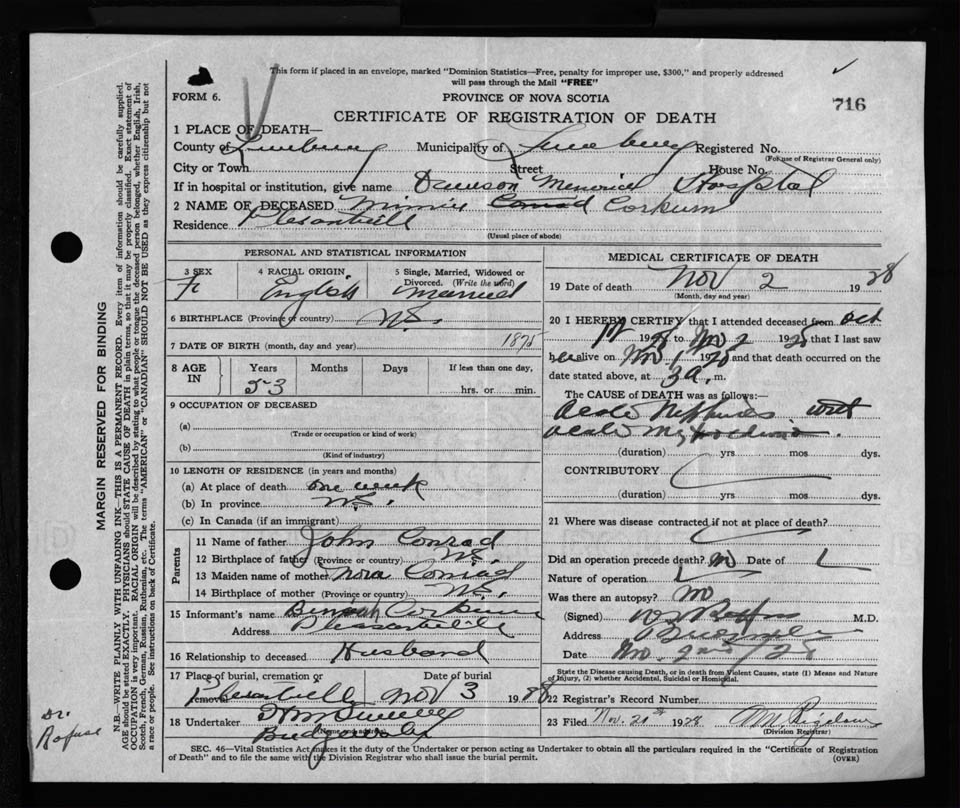 This form if placed in an envelope, marked "Dominion Statistics—Free, penalty for improper use, $300," and properly addressed
will pass through the Mail "FREE"
FORM 6.
PROVINCE OF NOVA SCOTIA
716
CERTIFICATE OF REGISTRATION OF DEATH
1 PLACE OF DEATH—
County of Lunenburg Municipality of Lunenburg Registered No.
(For use of Registrar General only)
City or Town Street House No.
If in hospital or institution, give name Dawson Memorial Hospital
2 NAME OF DECEASED Minnie Conrad Corkum
Residence Plesantvill
(Usual place of abode)
PERSONAL AND STATISTICAL INFORMATION
3 SEX 4 RACIAL ORIGIN. 5 Single, Married, Widowed or
Divorced. (Write the word)
F English Married
6 BIRTHPLACE (Province or country) N.S.
7 DATE OF BIRTH (month, day and year) 1875
8 AGE IN Years Months Days If less than one day,
53 hrs. or min.
9 OCCUPATION OF DECEASED
(a)
(Trade or occupation or kind of work)
(b)
(Kind of industry)
10 LENGTH OF RESIDENCE (in years and months)
(a) At place of death one week
(b) In province N.S.
(c) In Canada (if an immigrant)
Parents
11 Name of father John Conrad
12 Birthplace of father (Province or country) N.S.
13 Maiden name of mother Nora Conrad
14 Birthplace of mother (Province or country) N.S.
15 Informant's name Corkum
Address
16 Relationship to deceased Husband
17 Place of burial, cremation or removal Date of burial
Nov 3 1928
18 Undertaker
(Name and address)
Bridgewater
MEDICAL CERTIFICATE OF DEATH
19 Date of death Nov 2 1928
(Month, day and year)
20 I HEREBY CERTIFY that I attended deceased from Oct
19 to Nov 2 1928 that I last saw
her alive on Nov 1 1928 and that death occurred on the
date stated above, at 3 a. m.
The CAUSE of DEATH was as follows:
(duration) yrs mos dys.
CONTRIBUTORY
(duration) yrs mos dys.
21 Where was disease contracted if not at place of death?
Did an operation precede death? no Date of
Nature of operation
Was there an autopsy? no
(Signed) M.D.
Address
Date Nov. 2nd / 28
State the Disease causing Death, or in death from Violent Causes, state (1) Means and Nature
of Injury, (2) whether Accidental, Suicidal or Homicidal.
22 Registrar's Record Number
23 Filed Nov. 21st 1928
(Division Registrar)
SEC. 46—Vital Statistics Act makes it the duty of the Undertaker or person acting as Undertaker to obtain all the particulars required in the "Certificate of Registration
of Death" and to file the same with the Division Registrar who shall issue the burial permit.
(OVER)
MARGIN RESERVED FOR BINDING
N.B.—WRITE PLAINLY WITH UNFADING INK—THIS IS A PERMANENT RECORD. Every item of information should be carefully supplied.
AGE should be stated EXACTLY. PHYSICIANS should STATE CAUSE OF DEATH in plain terms, so that it may be properly classified. Exact statement of
OCCUPATION is very important. RACIAL ORIGIN will be described by stating to what people or tongue the deceased person belonged, whether English, Irish,
Scotch, French, German, Russian, Ruthenian, etc. The terms "AMERICAN" or "CANADIAN" SHOULD NOT BE USED as they express citizenship but not
a race or people. See instructions on back of Certificate.
Dr.
Rofuse